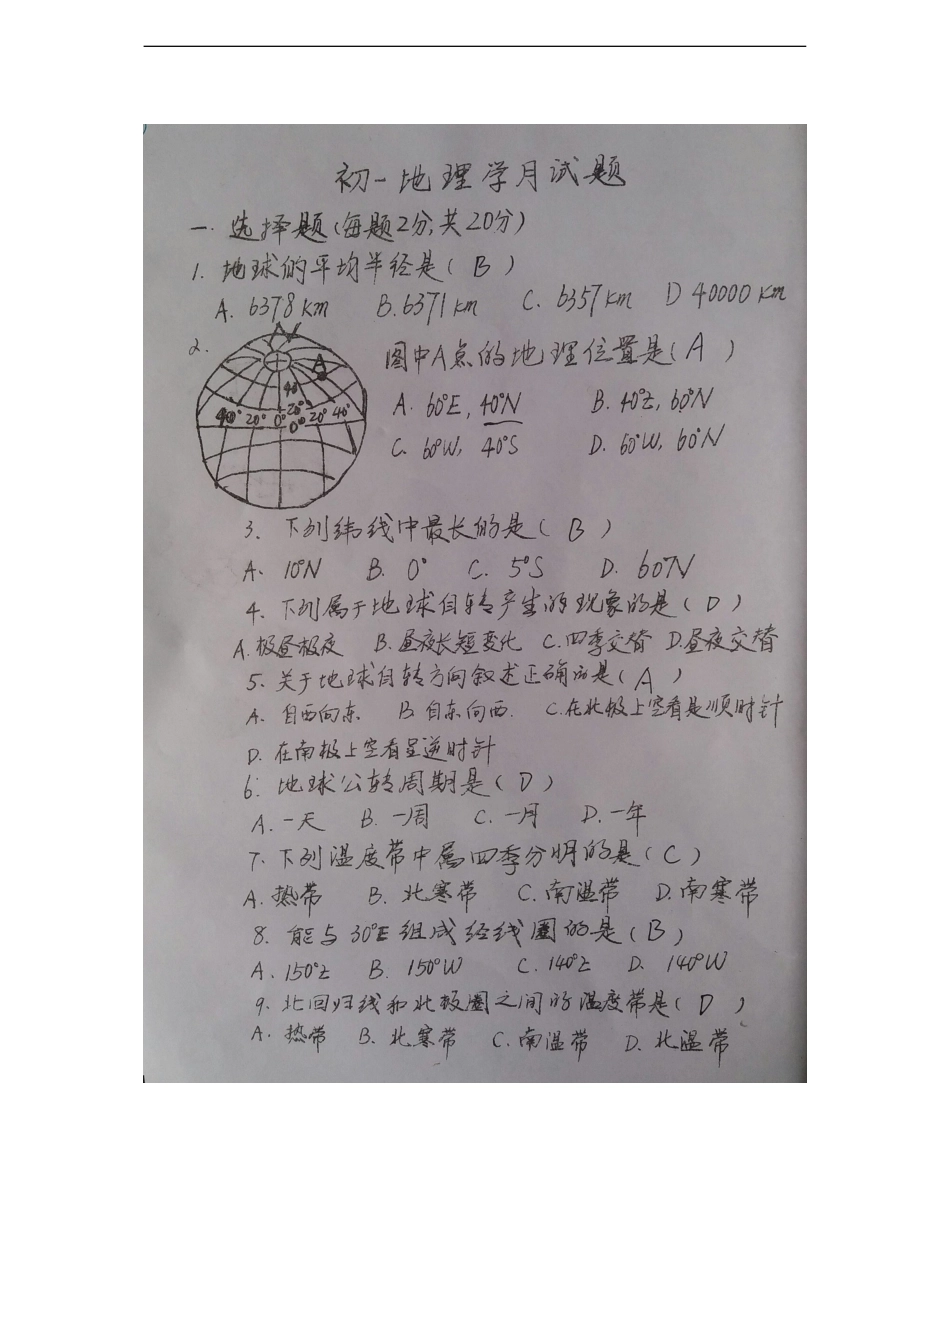 初一地理学月试题
一.选择题(每题2分,共20分)
1.地球的平均半径是( B )
A. 6378km B.6371km C. 6357km D 40000km
2.
N
A
40°
40° 20° 0° 20° 20° 40°
0°
图中A点的地理位置是( A )
A. 60°E, 40°N B. 40°E, 60°N
C. 60°W, 40°S D. 60°W, 60°N
3、下列纬线中最长的是( B )
A、10°N B. 0° C. 5°S D. 60°N
4、下列属于地球自转产生的现象的是( D )
A.极昼极夜 B.昼夜长短变化 C.四季交替 D.昼夜交替
5、关于地球自转方向叙述正确的是( A )
A、自西向东 B 自东向西. C.在北极上空看是顺时针
D. 在南极上空看呈逆时针
6: 地球公转周期是( D )
A.一天 B.一周 C.一月 D.一年
7、下列温度带中属四季分明的是( C )
A.热带 B.北寒带 C.南温带 D.南寒带
8. 能与30°E组成经线圈的是( B )
A、150°E B. 150°W C. 140°E D. 140°W
9. 北回归线和北极圈之间的温度带是( D )
A. 热带 B. 北寒带 C. 南温带 D. 北温带